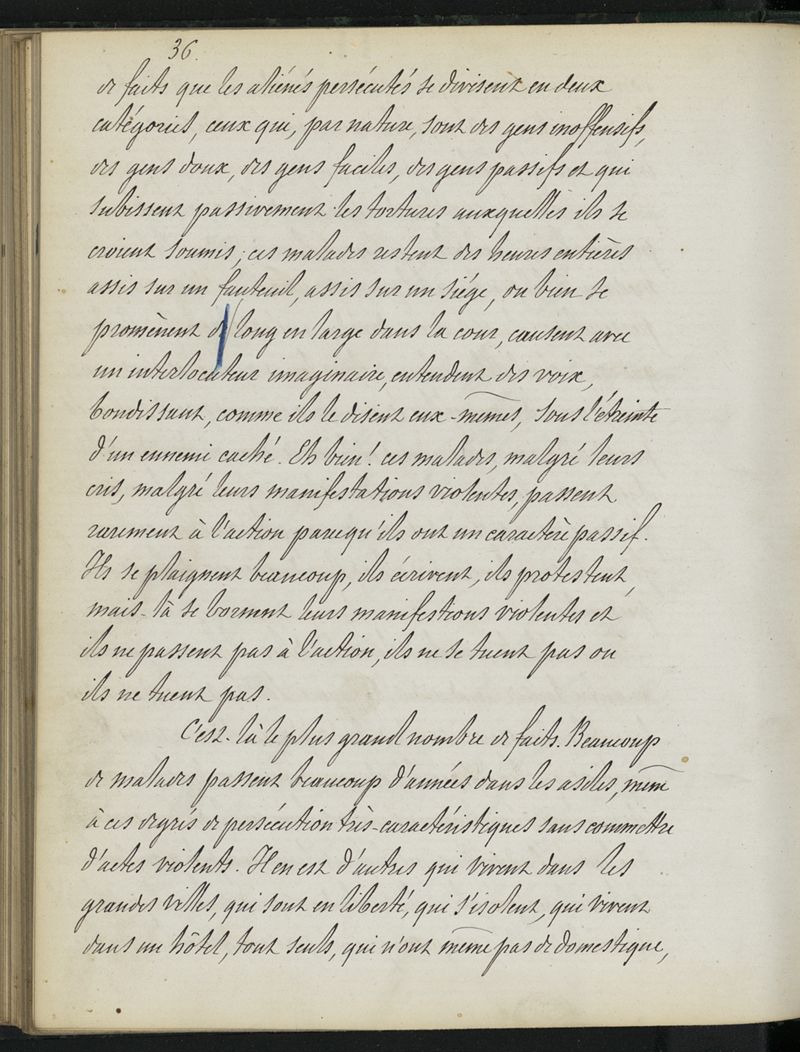 36.
de faits que les aliénés persécutés se divisent en deux
catégories, ceux qui, par nature, sont des gens inoffensifs,
des gens doux, des gens faciles, des gens passifs et qui
subissent passivement les tortures auxquelles ils se
croient soumis; ces malades restent des heures entières
assis sur un fauteuil, assis sur un siége, ou bien se
promènent de long en large dans la cour, causent avec
un interlocuteur imaginaire, entendent des voix,
bondissant, comme ils le disent eux-mêmes, sous l'étreinte
d'un ennemi caché. Eh bien! ces malades, malgré leurs
cris, malgré leurs manifestations violentes, passent
rarement à l'action parcequ'ils ont un caractère passif.
Ils se plaignent beaucoup, ils écrivent, ils protestent,
mais là se bornent leurs manifestions violentes et
ils ne passent pas à l'action, ils ne se tuent pas ou
ils ne tuent pas.
C'est-là le plus grand nombre de faits. Beaucoup
de malades passent beaucoup d'années dans les asiles, même
à ces degrés de persécution très-caractéristiques sans commettre
d'actes violents. Il en est d'autres qui vivent dans les
grandes villes, qui sont en liberté, qui s'isolent, qui vivent
dans un hôtel, tout seuls, qui n'ont même pas de domestique,